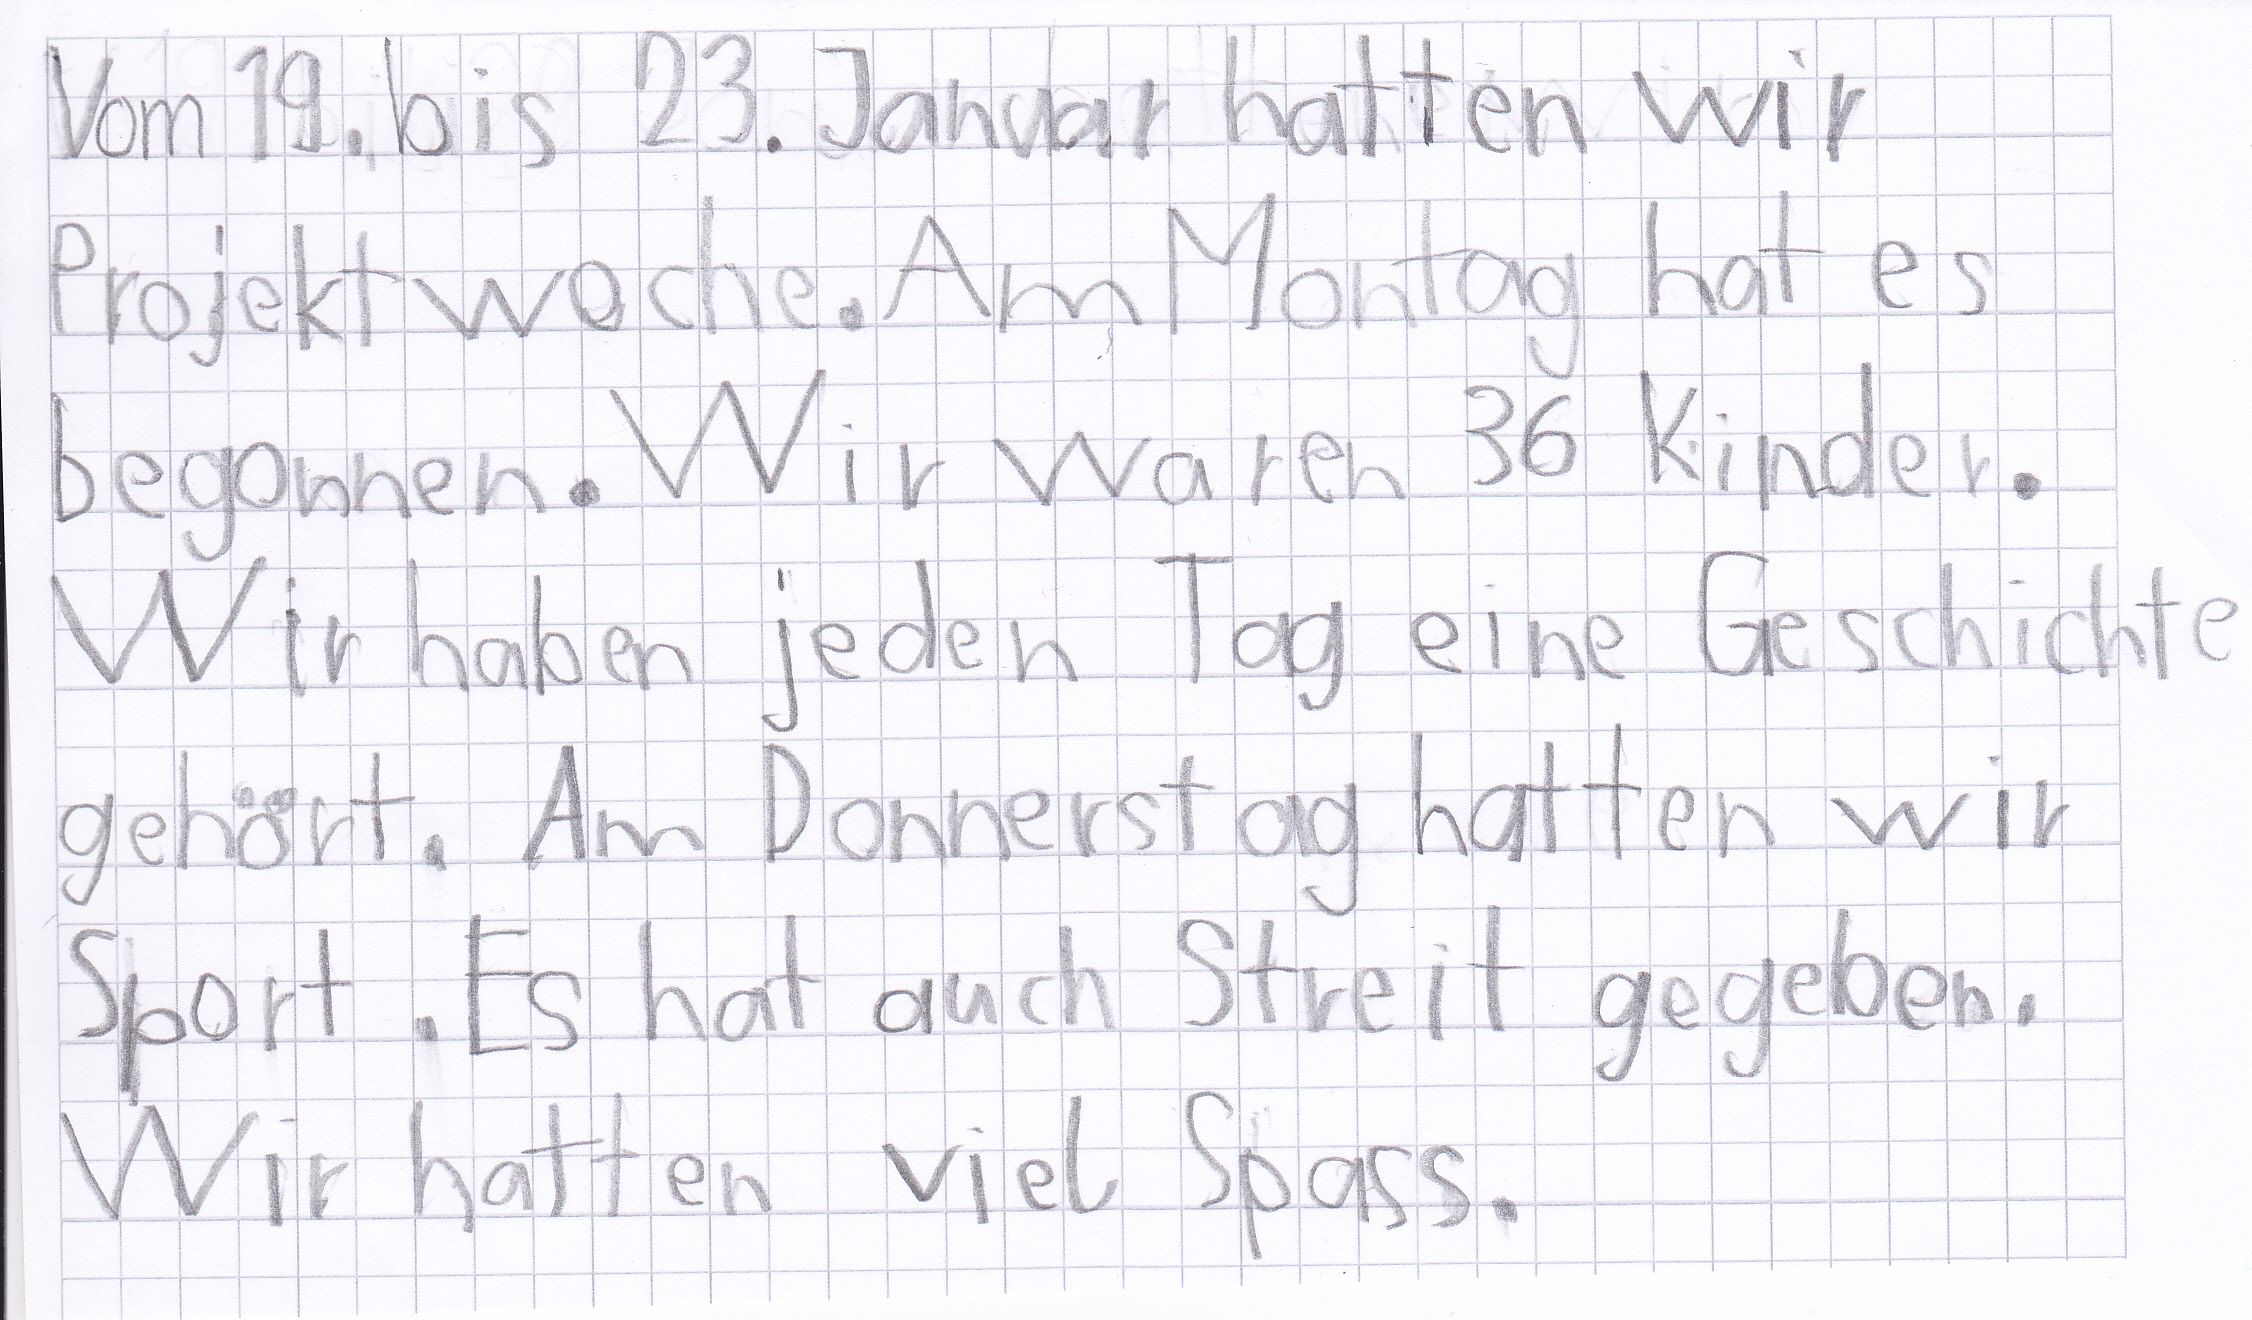 Vom 19. bis 23. Januar hatten wir
Projektwoche. Am Montag hat es
begonnen. Wir waren 36 Kinder.
Wir haben jeden Tag eine Geschichte
gehört. Am Donnerstag hatten wir
Sport. Es hat auch Streit gegeben.
Wir hatten viel Spass.